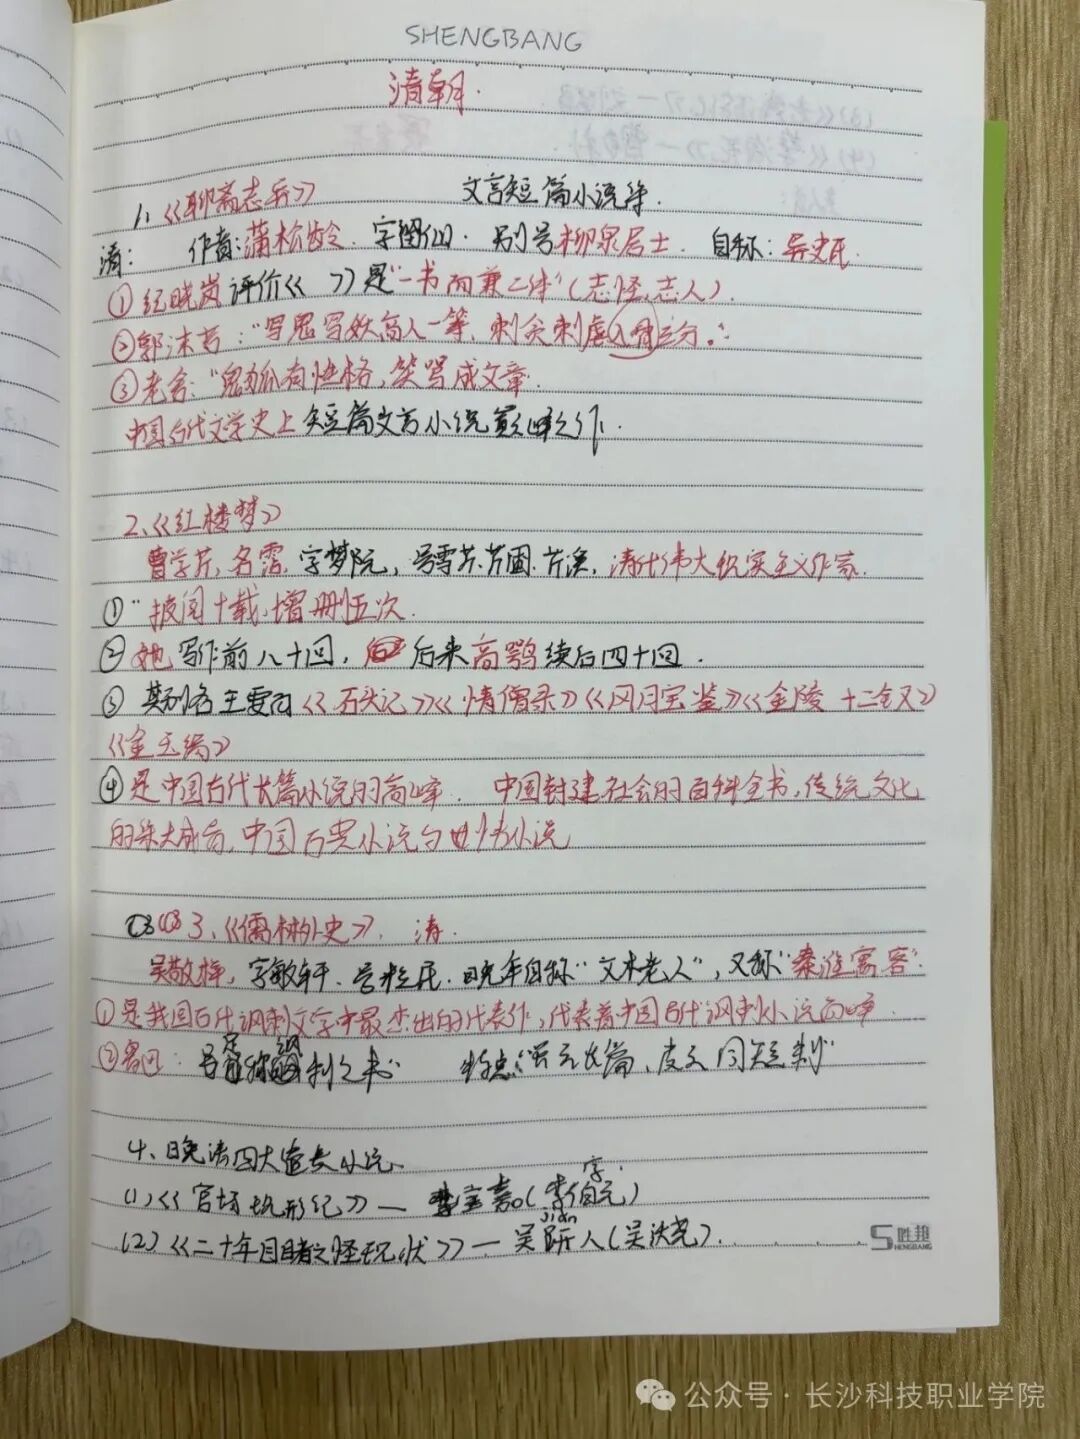 SHENGBANG
清朝.
1、《聊斋志异》 文言短篇小说集.
清: 作者:蒲松龄. 字留仙. 别号柳泉居士. 自称:异史氏.
①纪晓岚评价《 》是"一书而兼二体"(志怪.志人).
②郭沫若:"写鬼写妖高人一等、刺贪刺虐入骨三分。"
③老舍:"鬼狐有性格,笑骂成文章.
中国古代文学史上短篇文言小说巅峰之作.
2、《红楼梦》
曹学芹,名霑,字梦阮,号雪芹.芹圃.芹溪,清代伟大现实主义作家.
①"披阅十载,增删五次.
②她写作前八十回, 后来高鹗续后四十回.
③其别名主要有《石头记》《情僧录》《风月宝鉴》《金陵十二钗》
《金玉缘》
④是中国古代长篇小说的高峰. 中国封建社会的百科全书,传统文化
的集大成者,中国古典小说
3、《儒林外史》. 清.
吴敬梓,字敏轩.号粒民.晚年自称"文木老人",又称"秦淮寓客".
①是我国古代讽刺文学中最杰出的代表作,代表着中国古代讽刺小说高峰.
②鲁迅: 足称讽刺之书" 特点:"虽云长篇、皮 同短制"
4、晚清四大谴责小说.
(1)《官场现形记》— 李宝嘉。(字李伯元)
jiǎn
(2)《二十年目睹之怪现状》— 吴趼人(吴沃尧).
胜邦
SHENGBANG
公众号·长沙科技职业学院